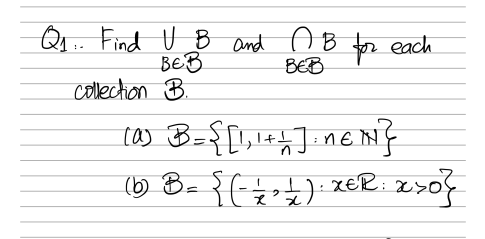 Q1:. Find ⋃ B and ⋂ B for each
B∈ℬ B∈ℬ
collection ℬ.
(a) ℬ={[1, 1+1/n] : n ∈ ℕ}
(b) ℬ = {(-1/x, 1/x) : x∈ℝ : x>0}